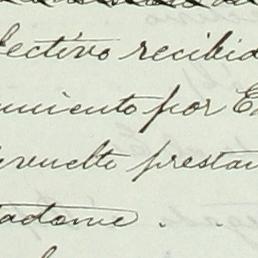 fectivo recibid
imiento por E
evuelto prestan
tadome . .